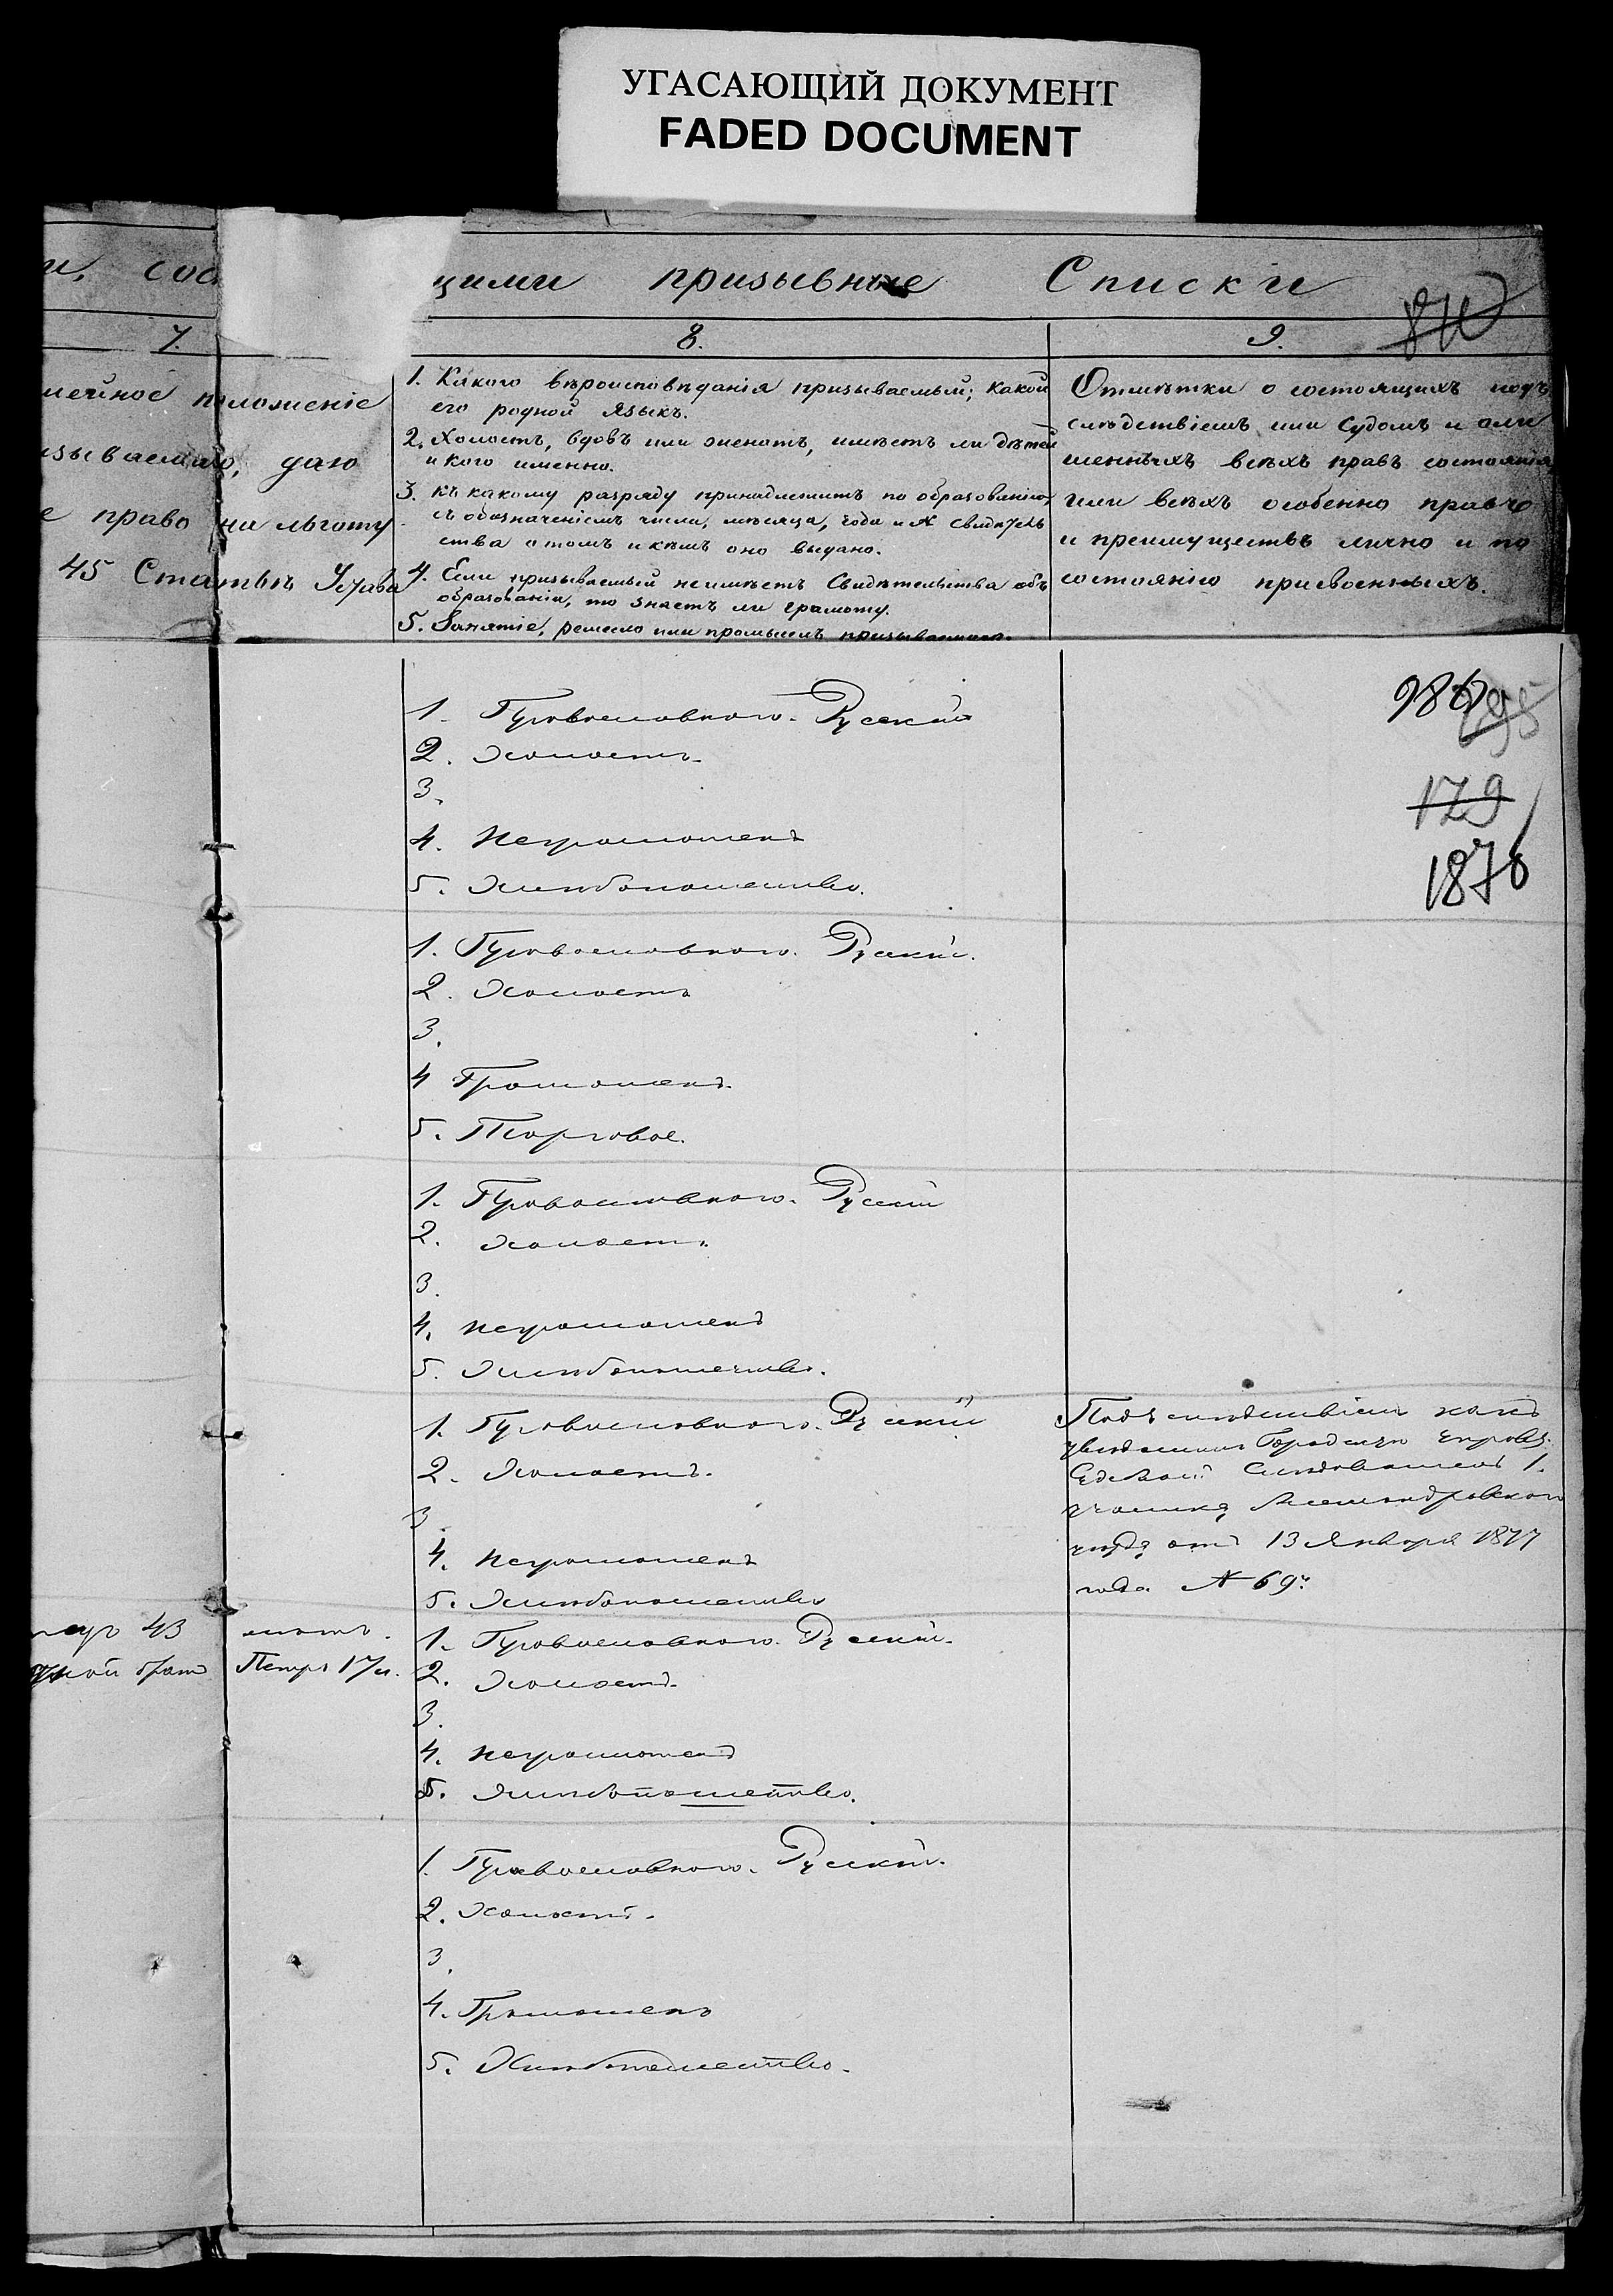 УГАСАЮЩИЙ ДОКУМЕНТ
FADED DOCUMENT
и, сос щими призывные Списки
7. 8. 9.
810
мейное положеніе
изываемаго, даю
е право на льготу
45 Статьѣ Устава
1. Какого вѣроисповѣданія призываемый; какой
его родной языкъ.
2. Холостъ, вдовъ или женатъ, имѣетъ ли дѣтей
и кого именно.
3. Къ какому разряду принадлежитъ по образованію,
съ обозначеніемъ числа, мѣсяца, года и № свидѣтель
ства о томъ и кѣмъ оно выдано.
4. Если призываемый неимѣетъ Свидѣтельства объ
образованіи, то знаетъ ли грамоту.
5. Занятіе, ремесло или промыселъ призываемаго.
Отмѣтки о состоящихъ подъ
слѣдствіемъ или Судомъ и о ли
шенныхъ всѣхъ правъ состоянія
или всѣхъ особенно правъ
и преимуществъ лично и по
состоянію присвоенныхъ.
986
295
179
1876
1. Православнаго. Русскій
2. Холостъ.
3.
4. Неграмотенъ
5. Хлѣбопашество.
1. Православнаго. Русскій.
2. Холостъ
3.
4 Грамотенъ.
5. Торговое.
1. Православнаго. Русскій
2. Холостъ.
3.
4. неграмотенъ
5. Хлѣбопашество.
1. Православнаго. Русскій
2. Холостъ.
3.
4. неграмотенъ
5. Хлѣбопашество
Подъ слѣдствіемъ какъ
увѣдомилъ Городскую управу
Судебный Слѣдователь 1.
участка Александровскаго
уѣзда отъ 13 Января 1877
года № 69.
43 мать.
ной братъ Петръ 17 л.
1. Православнаго. Русскій.
2. Холостъ.
3.
4. неграмотенъ
5. Хлѣбопашество.
1. Православнаго. Русскій.
2. Холостъ.
3.
4. Грамотенъ
5. Хлѣбопашество.